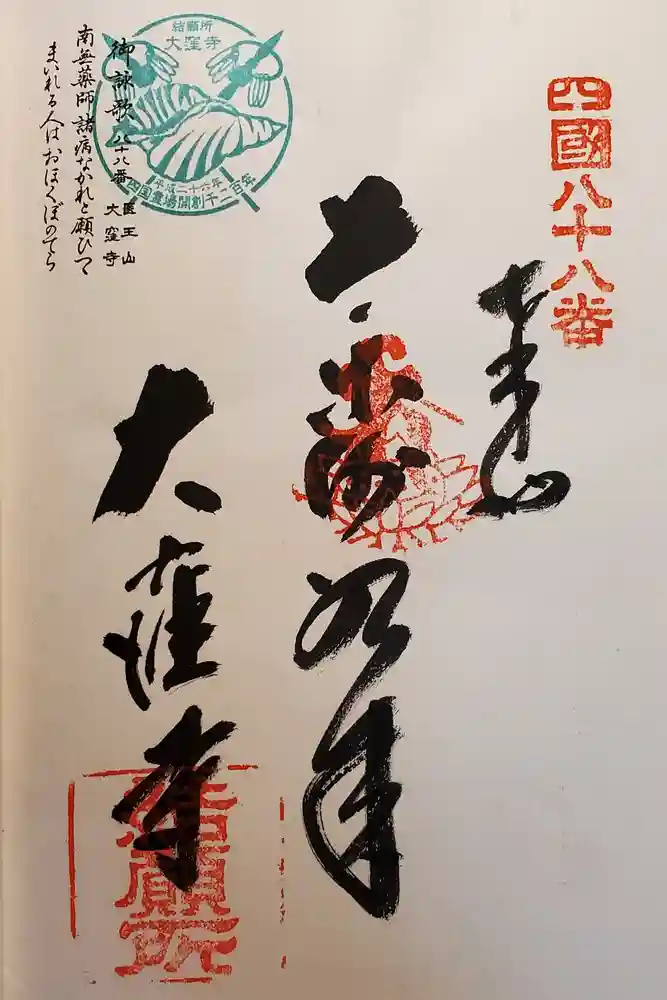 四國八十八番
大窪寺
結願所
結願所
大窪寺
平成二十六年
四国霊場開創千二百年
御詠歌 八十八番 医王山 大窪寺
南無薬師諸病なかれと願ひつゝ
まいれる人はおほくぼのてら